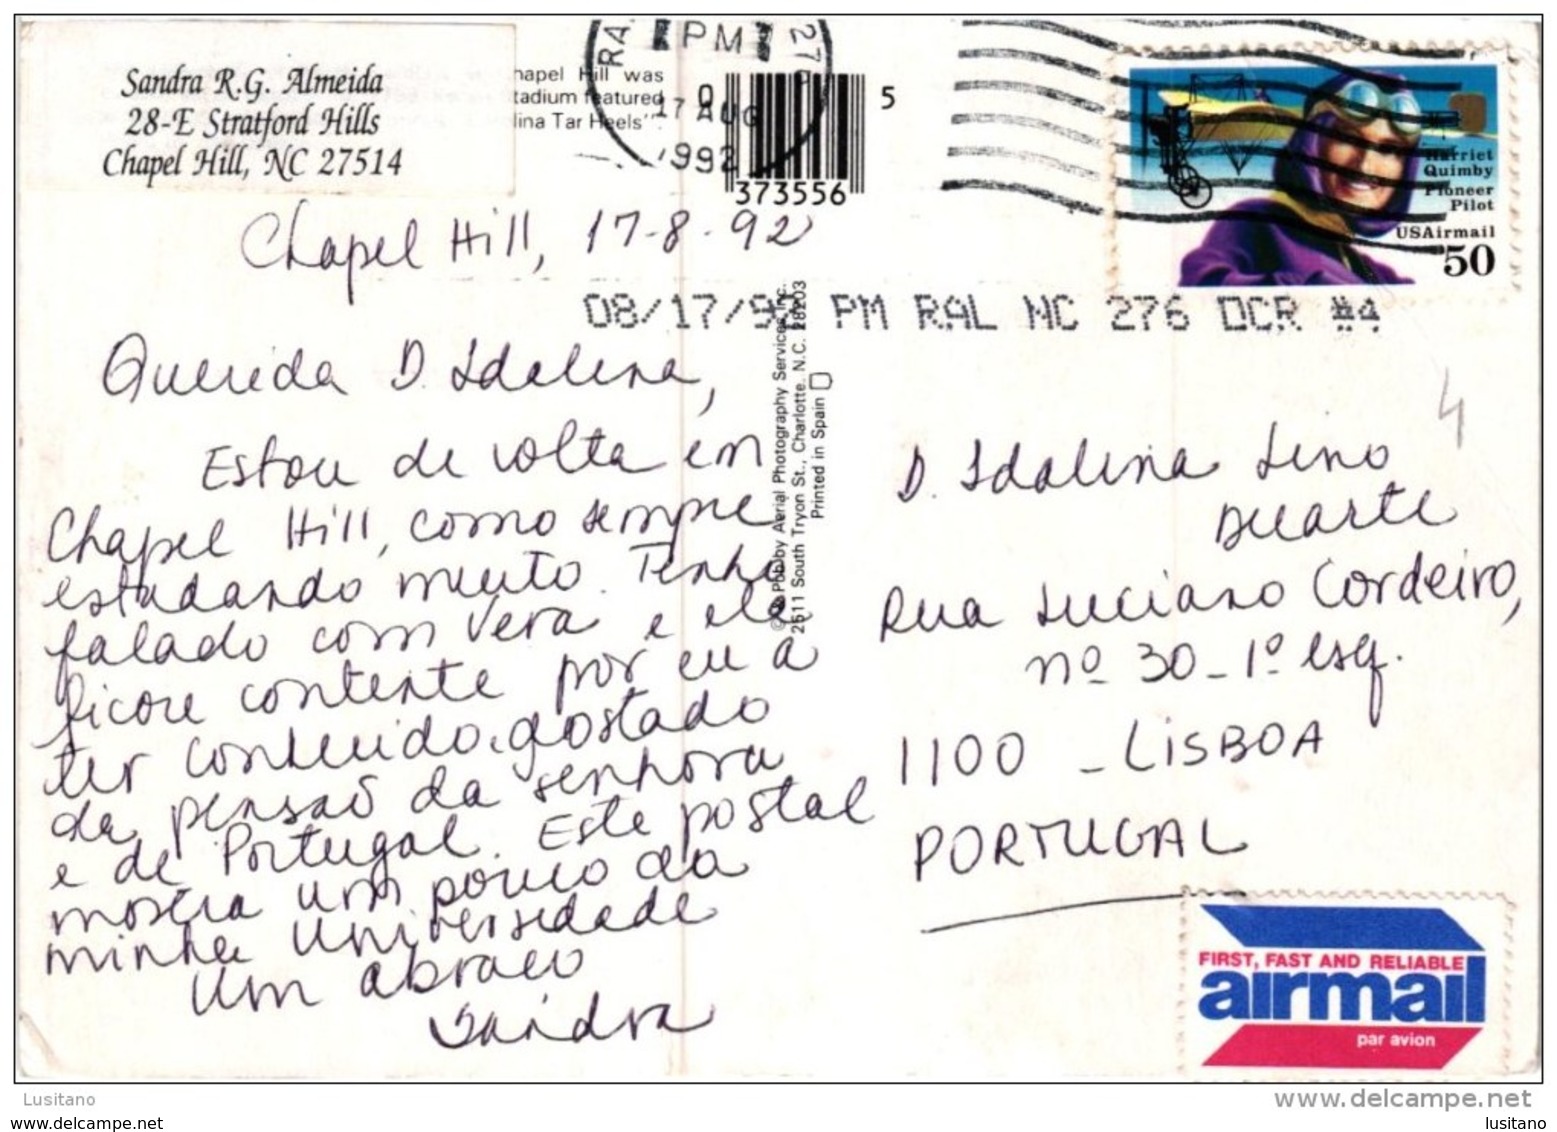 Sandra R.G. Almeida
28-E Stratford Hills
Chapel Hill, NC 27514
hapel Hill was
tadium featured
lina Tar Heels".
RA
PM
27
17 AUG
1992
0
5
373556
Harriet
Quimby
Pioneer
Pilot
USAirmail
50
Chapel Hill, 17-8-92
08/17/92 PM RAL NC 276 OCR #4
Querida D. Idalina,
Estou de volta em
Chapel Hill, como sempre
estudando muito. Tenho
falado com Vera e ela
ficou contente por eu a
ter conhecido, gostado
da pensão da senhora
e de Portugal. Este postal
mostra um pouco da
minha Universidade
Um abraço
Sandra
Aerial Photography Services, Inc.
2511 South Tryon St., Charlotte, N.C. 28203
Printed in Spain
4
D. Idalina Lino
Duarte
Rua Luciano Cordeiro,
nº 30 - 1º esq.
1100 - LISBOA
PORTUGAL
FIRST, FAST AND RELIABLE
airmail
par avion
Lusitano
www.delcampe.net
lusitano
lusitano